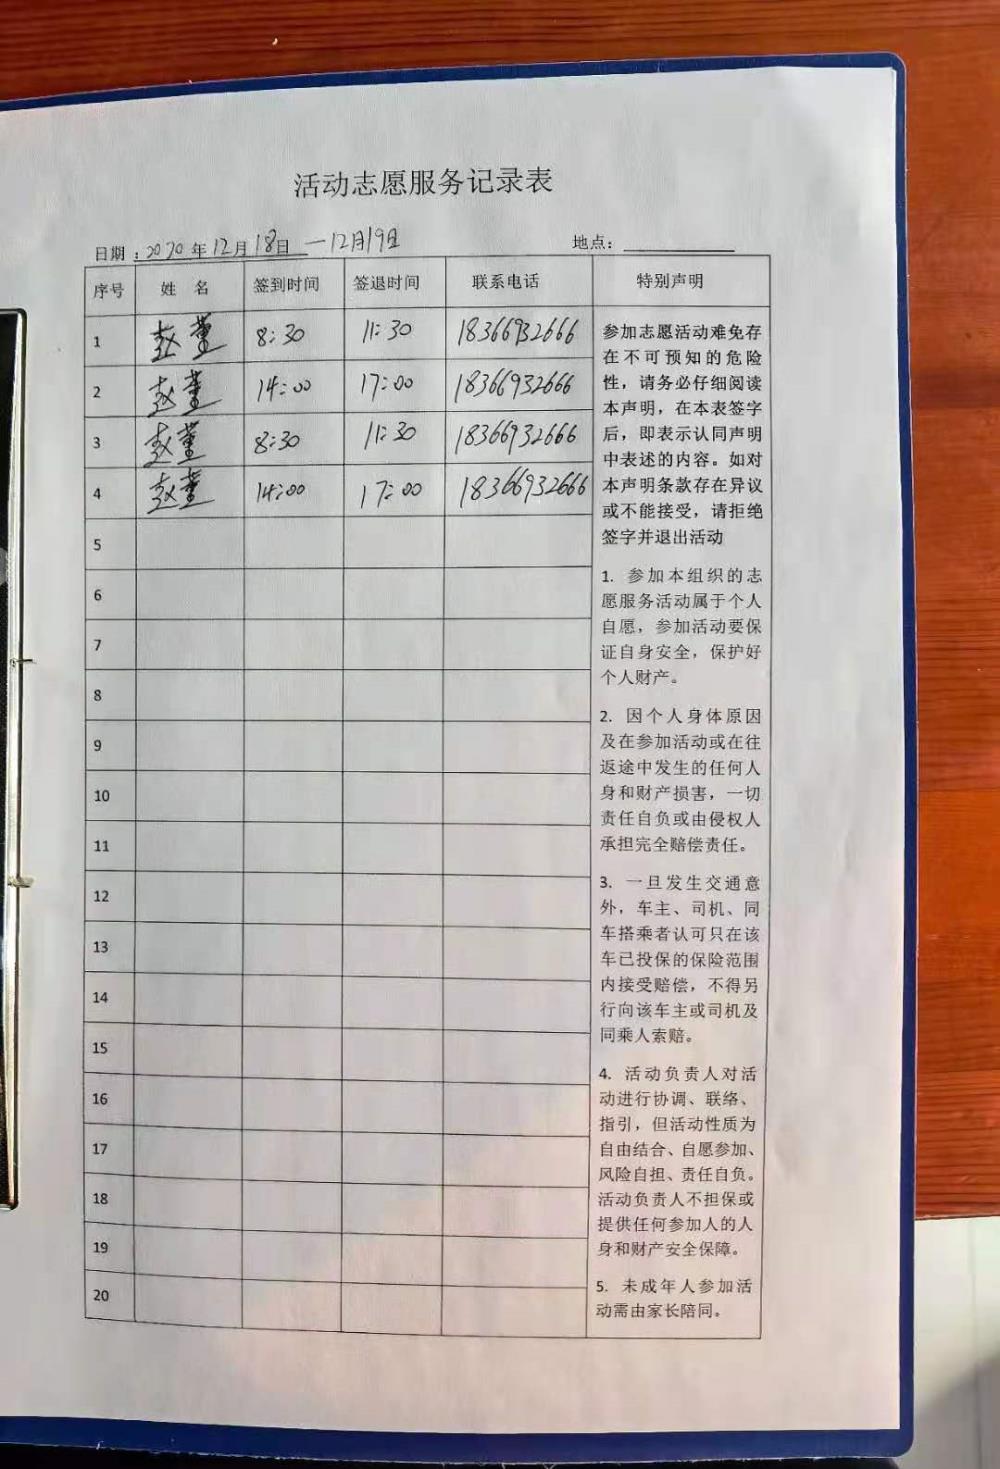 活动志愿服务记录表
日期：2020年12月18日 —12月19日 地点：
序号 姓 名 签到时间 签退时间 联系电话 特别声明
1 赵董 8:30 11:30 18366932666
2 赵董 14:00 17:00 18366932666
3 赵董 8:30 11:30 18366932666
4 赵董 14:00 17:00 18366932666
5
6
7
8
9
10
11
12
13
14
15
16
17
18
19
20
参加志愿活动难免存
在不可预知的危险
性，请务必仔细阅读
本声明，在本表签字
后，即表示认同声明
中表述的内容。如对
本声明条款存在异议
或不能接受，请拒绝
签字并退出活动
1. 参加本组织的志
愿服务活动属于个人
自愿，参加活动要保
证自身安全，保护好
个人财产。
2. 因个人身体原因
及在参加活动或在往
返途中发生的任何人
身和财产损害，一切
责任自负或由侵权人
承担完全赔偿责任。
3. 一旦发生交通意
外，车主、司机、同
车搭乘者认可只在该
车已投保的保险范围
内接受赔偿，不得另
行向该车主或司机及
同乘人索赔。
4. 活动负责人对活
动进行协调、联络、
指引，但活动性质为
自由结合、自愿参加、
风险自担、责任自负。
活动负责人不担保或
提供任何参加人的人
身和财产安全保障。
5. 未成年人参加活
动需由家长陪同。